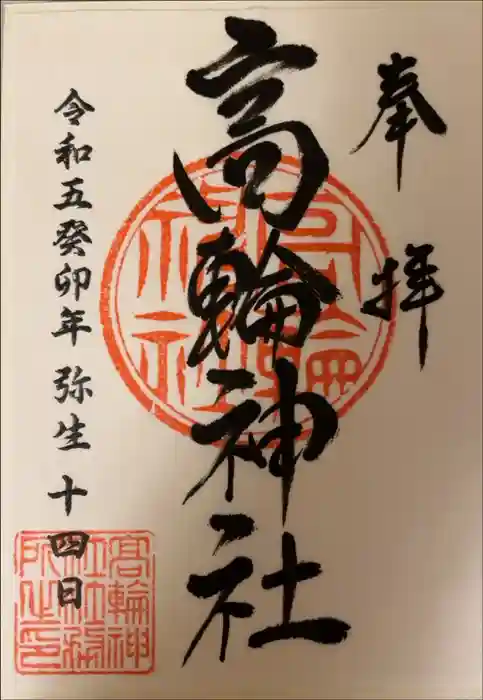 奉拝
高輪神社
令和五癸卯年 弥生 十四日
高輪神社
高輪神
社社務
所之印